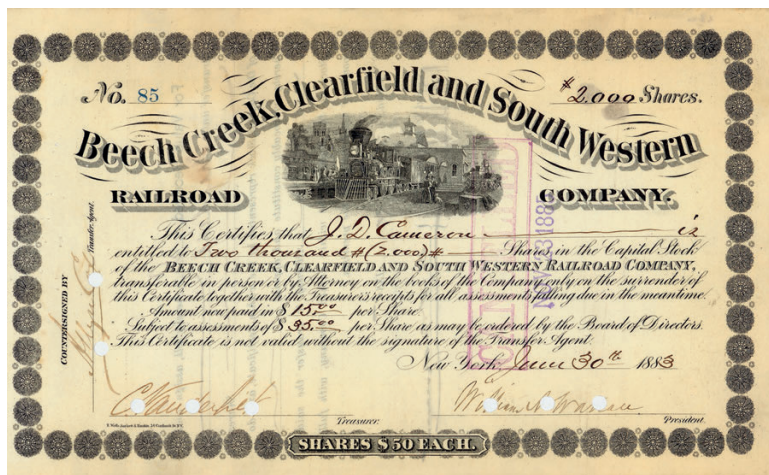 No. 85
$2,000 Shares.
Beech Creek, Clearfield and South Western
RAILROAD COMPANY.
This Certifies, that J. D. Cameron is
entitled to Two thousand #(2,000)# Shares in the Capital Stock
of the BEECH CREEK, CLEARFIELD AND SOUTH WESTERN RAILROAD COMPANY,
transferable in person or by Attorney on the books of the Company only on the surrender of
this Certificate together with the Treasurers receipts for all assessments falling due in the meantime.
Amount now paid in $15.00 per Share
Subject to assessments of $35.00 per Share as may be ordered by the Board of Directors.
This Certificate is not valid without the signature of the Transfer Agent.
New York, June 30th 1883
COUNTERSIGNED BY
Transfer Agent.
C Vanderbilt
Treasurer.
President.
SHARES $50 EACH.